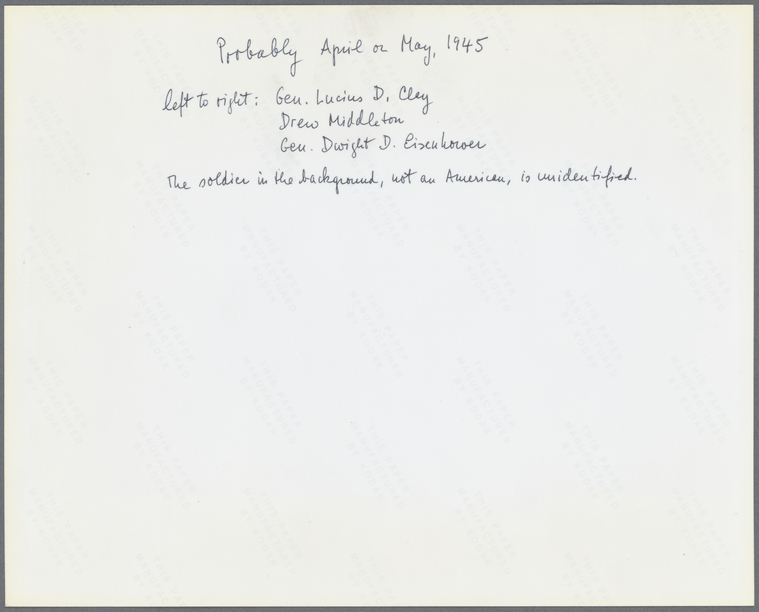 Probably April or May, 1945
left to right: Gen. Lucius D. Clay
Drew Middleton
Gen. Dwight D. Eisenhower
The soldier in the background, not an American, is unidentified.
THIS PAPER
MANUFACTURED
BY KODAK